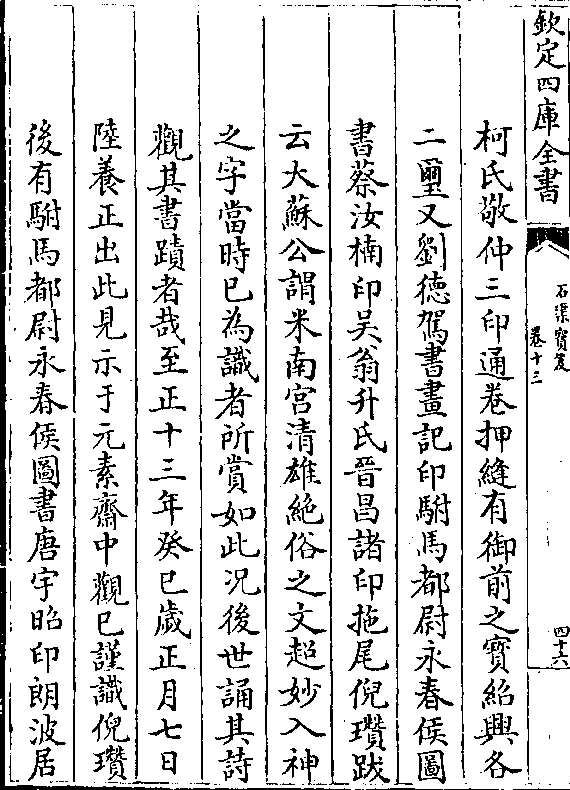 欽定四庫全書
石渠寶笈
卷十三
四十六
柯氏敬仲三印通卷押縫有御前之寳紹興各
二璽又劉德駕書畫記印駙馬都尉永春侯圖
書蔡汝楠印吴翁升氏晉昌諸印拖尾倪瓚跋
云大蘇公謂米南宫清雄絶俗之文超妙入神
之字當時已為識者所賞如此况後世誦其詩
觀其書蹟者哉至正十三年癸巳歲正月七日
陸養正出此見示于元素齋中觀已謹識倪瓚
後有駙馬都尉永春侯圖書唐宇昭印朗波居